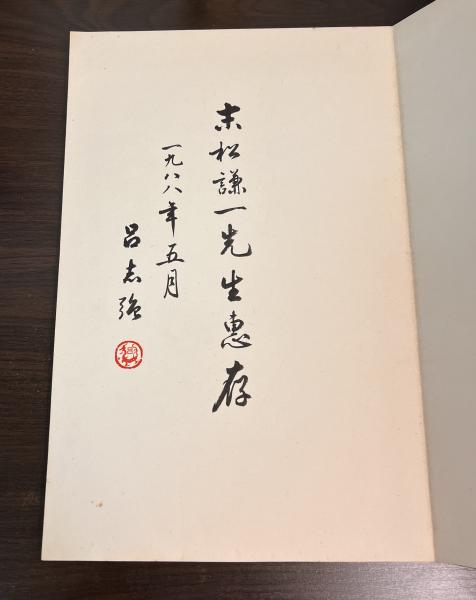 末松謙一先生惠存
一九八八年五月
呂志強